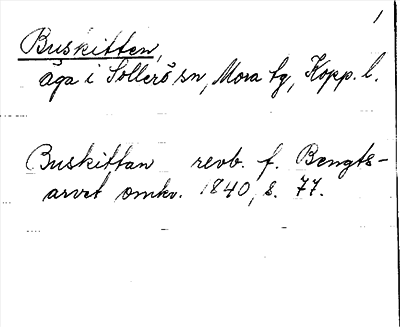 1
Buskitten,
äga i Sollerö sn, Mora tg, Kopp. l.
Buskittan revb. f. Bengts-
arvet omkr. 1840, s. 77.